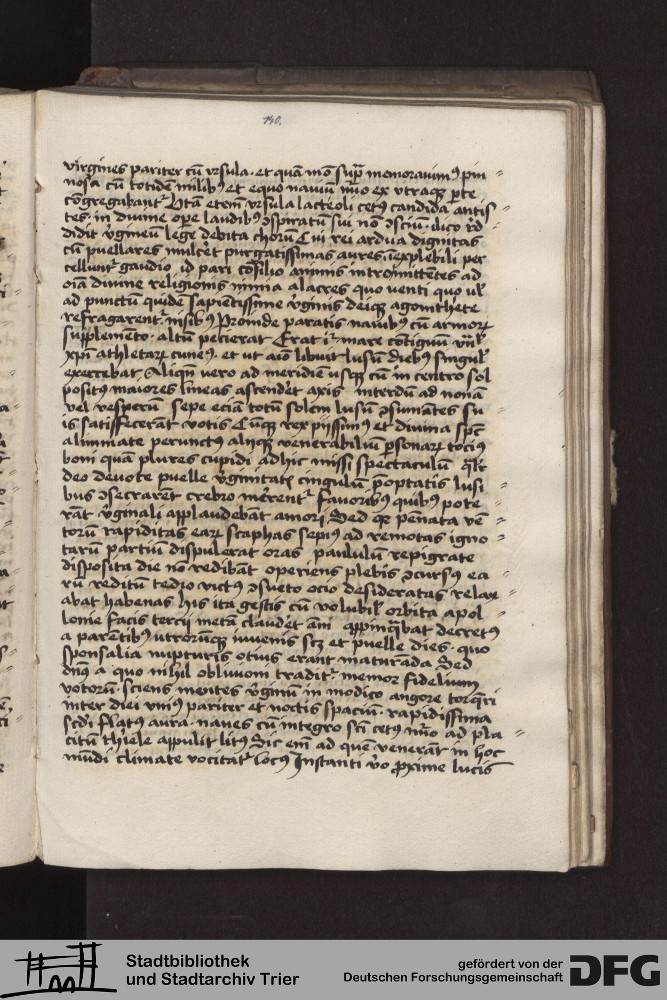 190.
virgines pariter cū vrsula · et quā mō sup̄ memorauim⁹ pin
nosa cū totidē milib⁹ et equo nauiū nūo ex vtraqꝫ p̱te
cōgregabant᷑ Vtā etem vrsula lacteoli cet⁹ candida antis
tes · in diuine oꝑe laudib⁹ ꝯspiratū sui nō ꝯsciū · ilico
didit v̓gineū lege debita chorū Cui rei ardua dignitas
cū puellares mulcēt purgatissimas aures · inexplebili per
cellunt᷑ gaudio id pari cōsilio animis intromittētes ad
oīa diuine religionis nimia alacres quo venti quo
ad punctū quidē sapiētissime v̓ginis deiqꝫ agonithete
refragarent᷑ nisib⁹ Proinde paratis nauib⁹ cū armoꝝ
supplemēto · altū pecierat Erat mare cōtiguū
xp̄i athletaꝝ cune⁹ · et vt aiū libuit lusū dieb⁹ singul̓
exercebat Aliqñ vero ad meridiē vsqꝫ cū in centro sol
posit⁹ maiores lineas ascendēt axis interdū ad nonā
vel vesperū sepe eciā totū solem lusū ꝯsumātes su
is satisfecerāt votis Cūqꝫ rex pijssim⁹ et diuina
alimmate perunct⁹ alijqꝫ venerabiliū ꝑsonaꝝ tocius
boni quā plures cupidi adhic missi spectaculū
deo deuote puelle v̓ginitat[is] cingulū p̱optatis lusi
bus ꝯsecrarent crebro mērent᷑ fauorib⁹ quib⁹ pote
rāt v̓ginali applaudebāt amori Sed qꝫ pēnata vē
toꝝ rapiditas eaꝝ scaphas sepi⁹ ad remotas igno
taꝝ partiū dispulerat oras paululū repigrate
disposita die nō redibāt operiens plebis ꝯcurs⁹ ea
rū reditū tedio vict⁹ ꝯsueto ocio desideratas relax
abat habenas his ita gestis cū volubil̓ orbita apol
lonie facis tercij metū clauderet āni appinq̄bat decret⁹
a parētib⁹ vtrorūqꝫ iuuenis scꝫ et puelle dies · quo
sponsalia nupturis otius erant maturāda Sed
dn̄s a quo nihil obliuioni tradit᷑ memor fidelium
votorū · sciens mentes v̓ginū in modico angore torq̄ri
inter diei vni⁹ pariter et noctis spaciū · rapidissima
scdi flat⁹ aura · naues cū integro sci cet⁹ nūo ad pla
citū thiele appulit lit⁹ Sic em̄ ad quē venerāt in hoc
mūdi climate vocitat᷑ loc⁹ Instanti v̓o ꝓxime lucis
Stadtbibliothek
und Stadtarchiv Trier
gefördert von der
Deutschen Forschungsgemeinschaft
DFG